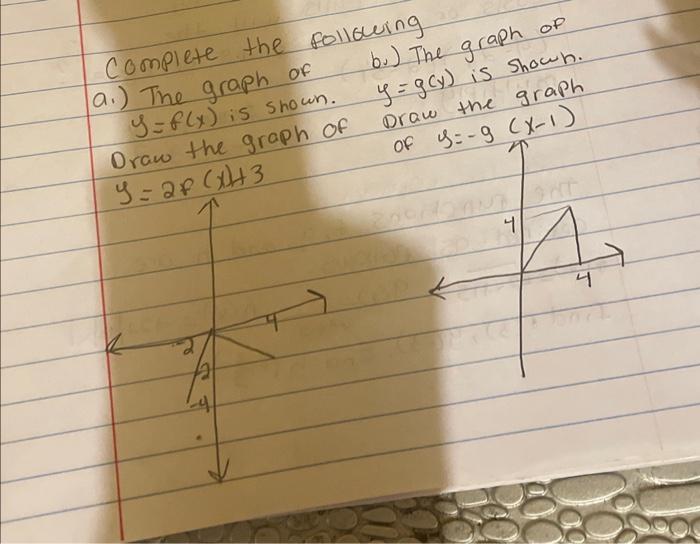 Complete the following
a.) The graph of
y=f(x) is shown.
Draw the graph of
y=2f(x)+3
4
-2
-2
-4
b.) The graph of
y=g(x) is shown.
Draw the graph
of y=-g(x-1)
4
4